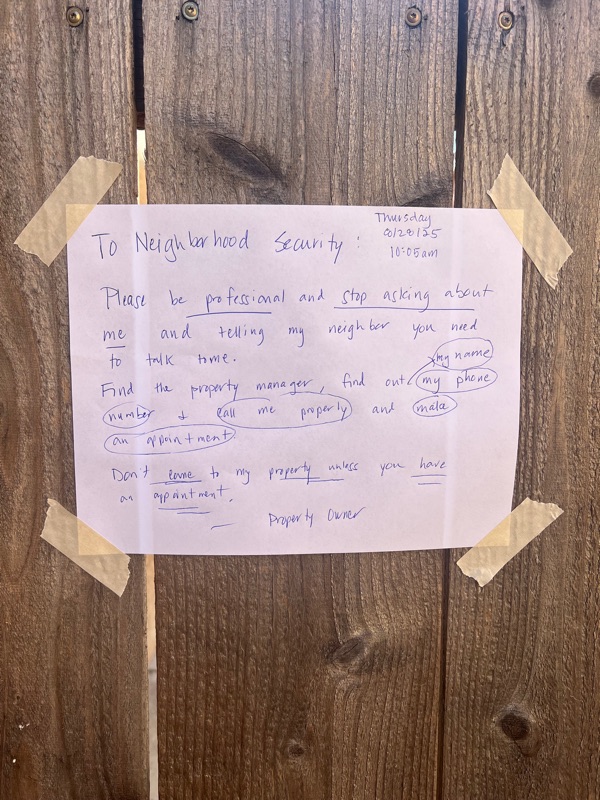 Thursday
8/28/25
10:05am
To Neighborhood Security:
Please be professional and stop asking about
me and telling my neighbor you need
to talk to me.
my name
Find the property manager, find out my phone
number & call me properly and make
an appointment
Don't come to my property unless you have
an appointment.
— Property Owner